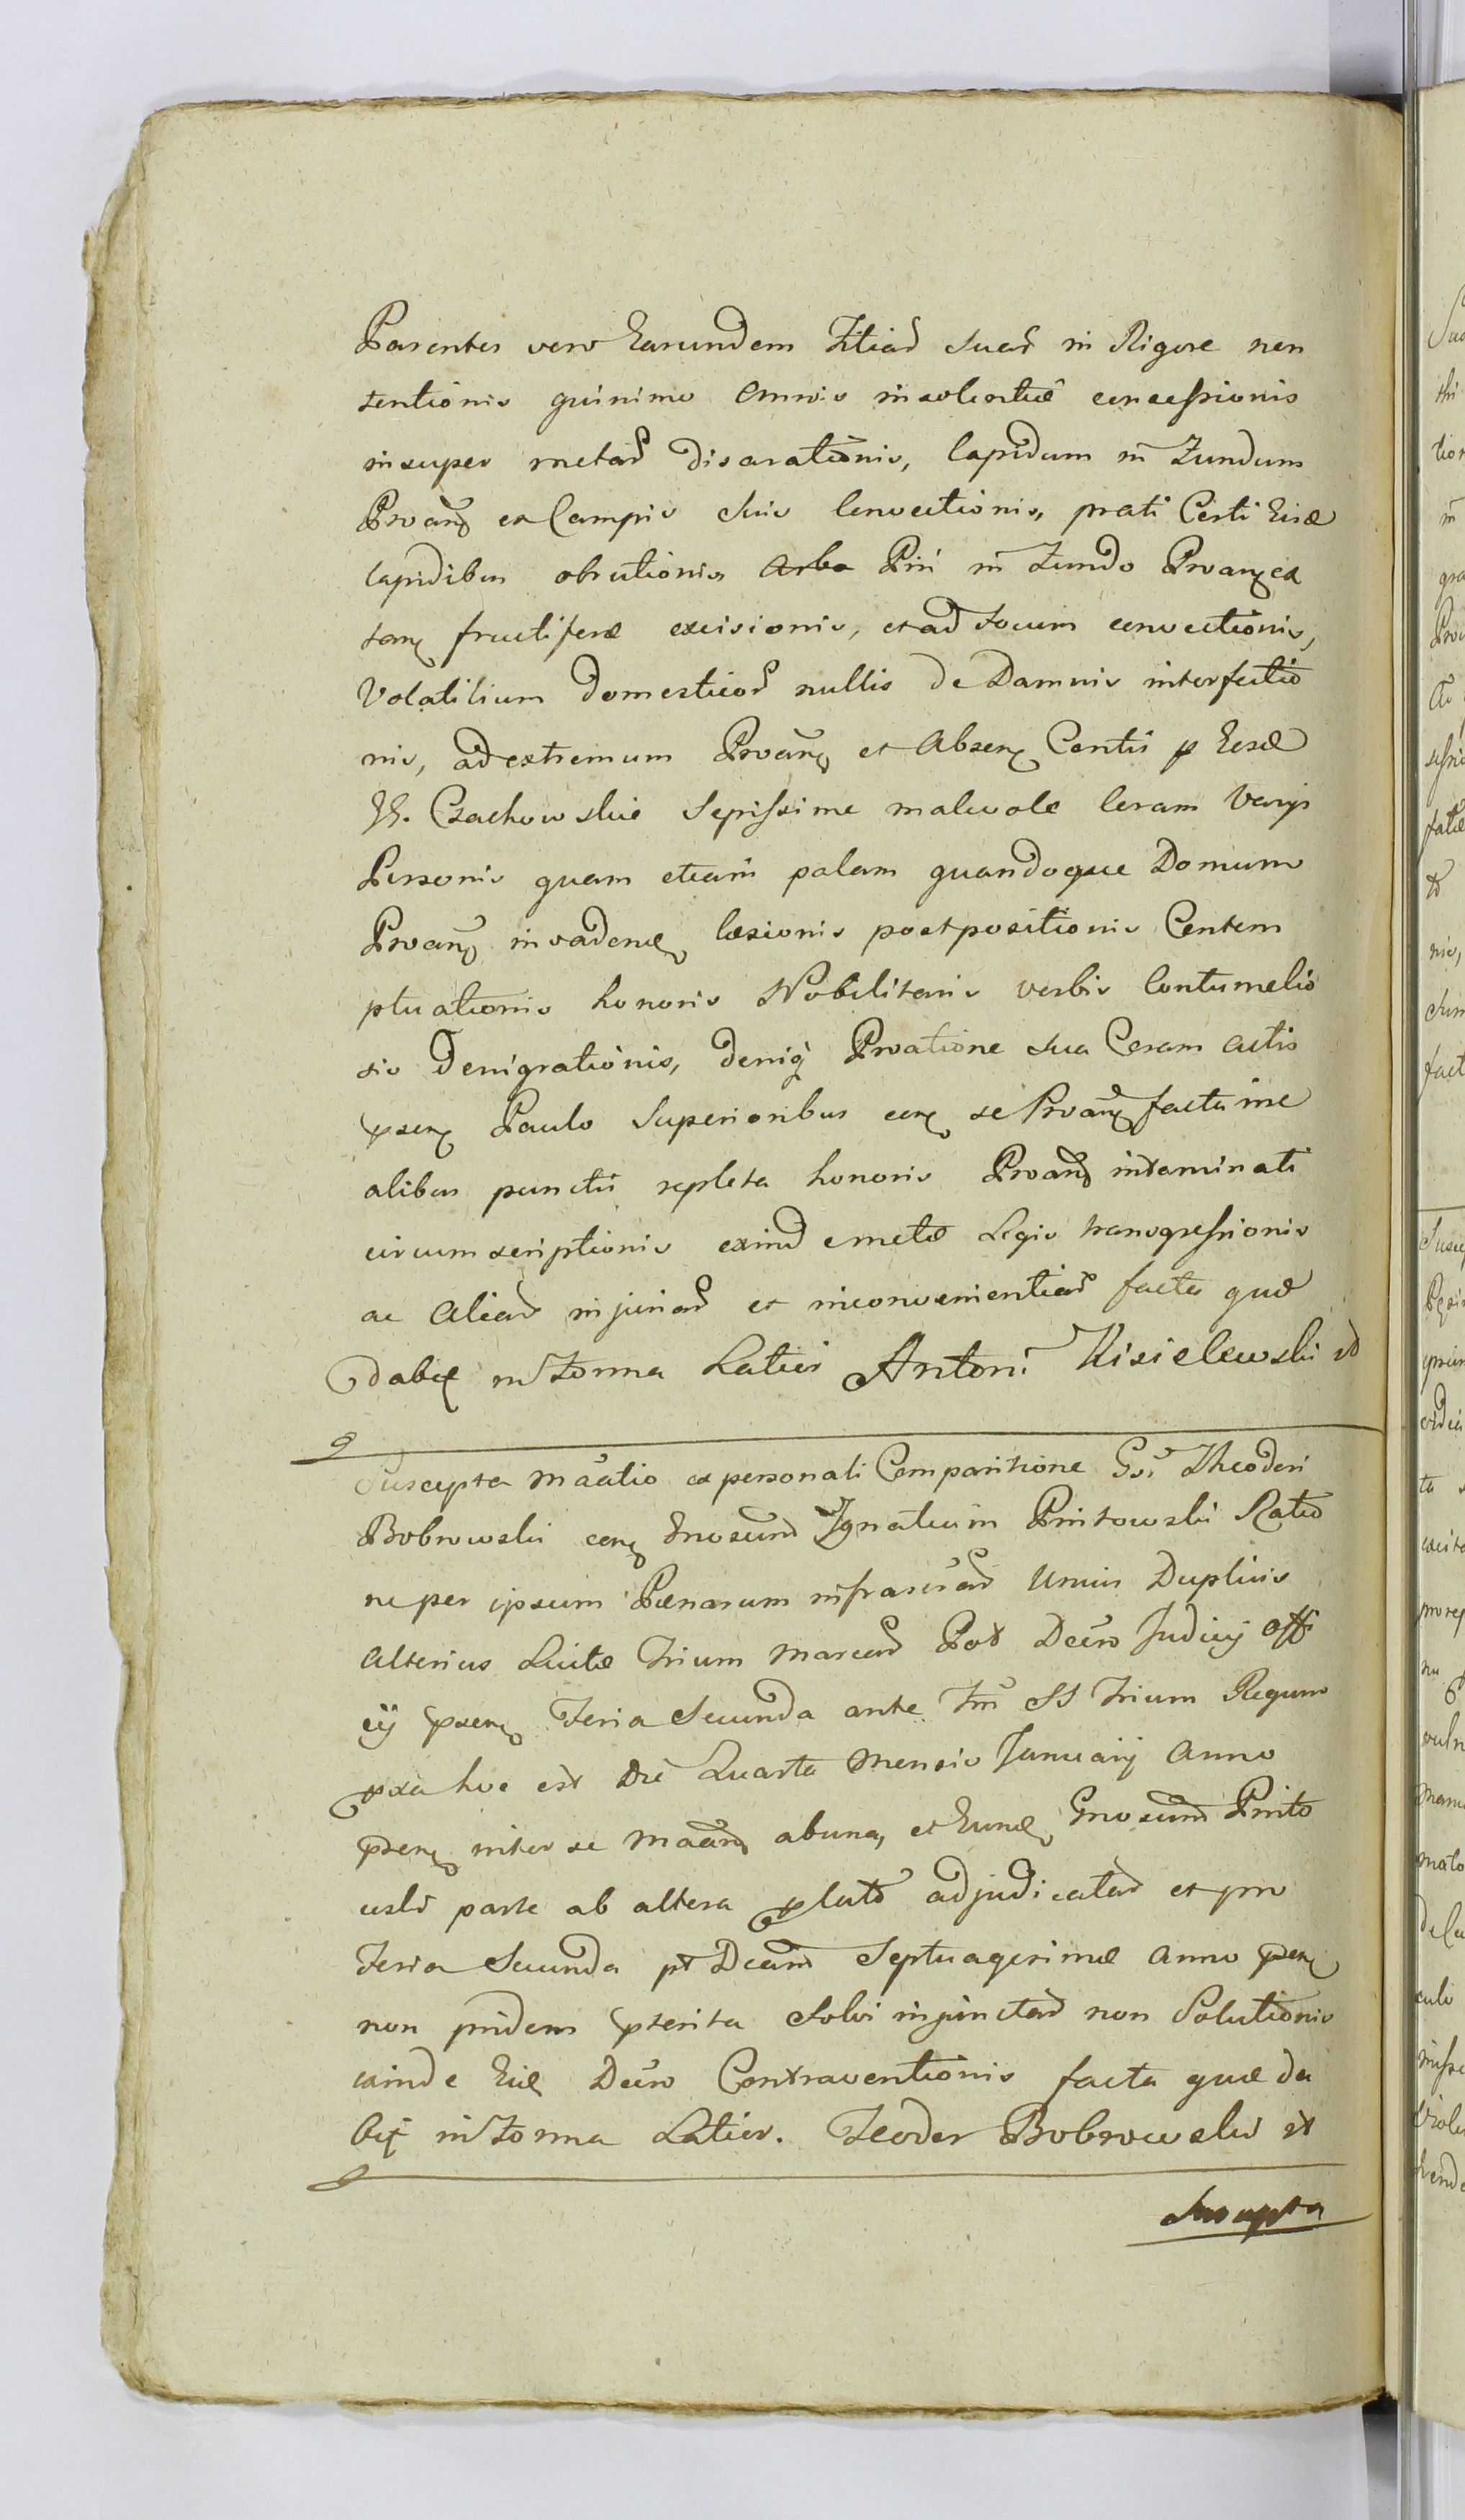 Parentes vero Earundem Filiar suar in Rigore non
tentionis quinimo omnis insolentiæ concessionis
insuper metar disarationis, lapidum in Fundum
Proan ex Campis suis Convectionis, prati Certi Eisd
lapidibus obrutionis Arbo Piri in Fundo Proan ex
tan fructiferæ excisionis, et ad focum convectionis,
Volatilium domesticor nullis de Damnis interfectio
nis, ad extremum Proan et Absen Contis p Eosd
GG. Czachowskie Sepissime malevole Coram Varijs
Personis quam etiam palam quandoque Domum
Proan invaden læsionis postpositionis Contem
ptuationis honoris Nobilitaris verbis Contumelio
sis Denigrationis, deniq Proatione sua Coram actis
psen Paulo Superioribus con se Proan facta ine
alibus punctis repleta honoris Proan intaminati
circumscriptionis exind e metæ Legis transgressionis
ac Aliar injuriar et inconvenientiar facta quæ
dabit in Forma Latior Antoni Kisielewski
Suscepta Maatio ex personali Comparitione Gsi Theodori
Bobrowski con Gnosum Ignatium Pintowski Ratio
ne per ipsum Pænarum infrascrar Unius Duplicis
Alterius Luitæ Trium Marcar Pot Decro Judicij Offi
cij psen Feria Secunda ante Fm SS Trium Regum
pxa hoc est Die Quarta Mensis Januarij Anno
psen inter se Maan ab una, et Eund Gnosum Pinto
wski parte ab altera plato adjudicatar et pro
Feria Secunda pt Dcam Septuagesimæ Anno psen
non pridem pterita Solvi injunctar non Solutionis
exinde Eid Decro Contraventionis facta quæ da
bit in Forma Latior. Teodor Bobrowski
Suscepta